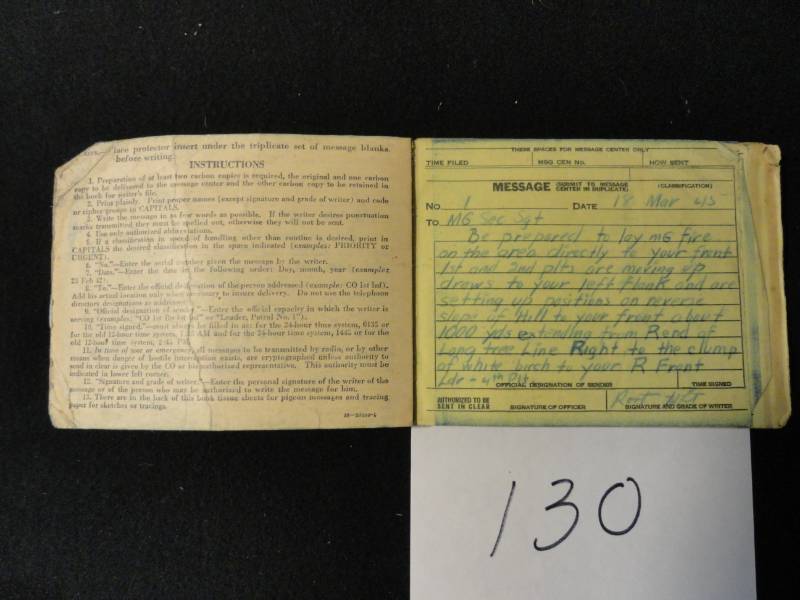 face protector insert under the triplicate set of message blanks
before writing.
INSTRUCTIONS
1. Preparation of at least two carbon copies is required, the original and one carbon
copy to be delivered to the message center and the other carbon copy to be retained in
the book for writer's file.
2. Print plainly. Print proper names (except signature and grade of writer) and code
or cipher groups in CAPITALS.
3. Write the message in as few words as possible. If the writer desires punctuation
marks transmitted they must be spelled out, otherwise they will not be sent.
4. Use only authorized abbreviations.
5. If a classification in speed of handling other than routine is desired, print in
CAPITALS the desired classification in the space indicated (examples: PRIORITY or
URGENT).
6. "No."—Enter the serial number given the message by the writer.
7. "Date."—Enter the date in the following order: Day, month, year (example:
25 Feb 42).
8. "To."—Enter the official designation of the person addressed (example: CO 1st Inf).
Add his actual location only when necessary to insure delivery. Do not use the telephone
directors designations as addresses.
9. "Official designation of sender."—Enter the official capacity in which the writer is
serving (examples: "CO 1st Bn 1st Inf" or "Leader, Patrol No. 1").
10. "Time signed."—must always be filled in as: for the 24-hour time system, 0135 or
for the old 12-hour time system, 1:35 AM and for the 24-hour time system, 1445 or for the
old 12-hour time system, 2:45 PM.
11. In time of war or emergency, all messages to be transmitted by radio, or by other
means when danger of hostile interception exists, are cryptographed unless authority to
send in clear is given by the CO or his authorized representative. This authority must be
indicated in lower left corner.
12. "Signature and grade of writer."—Enter the personal signature of the writer of the
message or of the person who may be authorized to write the message for him.
13. There are in the back of this book tissue sheets for pigeon messages and tracing
paper for sketches or tracings.
THESE SPACES FOR MESSAGE CENTER ONLY
TIME FILED MSG CEN No. HOW SENT
MESSAGE (SUBMIT TO MESSAGE CENTER IN DUPLICATE) (CLASSIFICATION)
No. 1 DATE 18 Mar 45
TO MG Sec Sgt
Be prepared to lay MG fire
on the area directly to your front
1st and 2nd plts are moving up
draws to your left flank and are
setting up positions on reverse
slope of Hill to your front about
1000 yds extending from R end of
Long tree Line Right to the clump
of white birch to your R Front
Ldr - 4th Plt
OFFICIAL DESIGNATION OF SENDER TIME SIGNED
AUTHORIZED TO BE
SENT IN CLEAR SIGNATURE OF OFFICER SIGNATURE AND GRADE OF WRITER
130